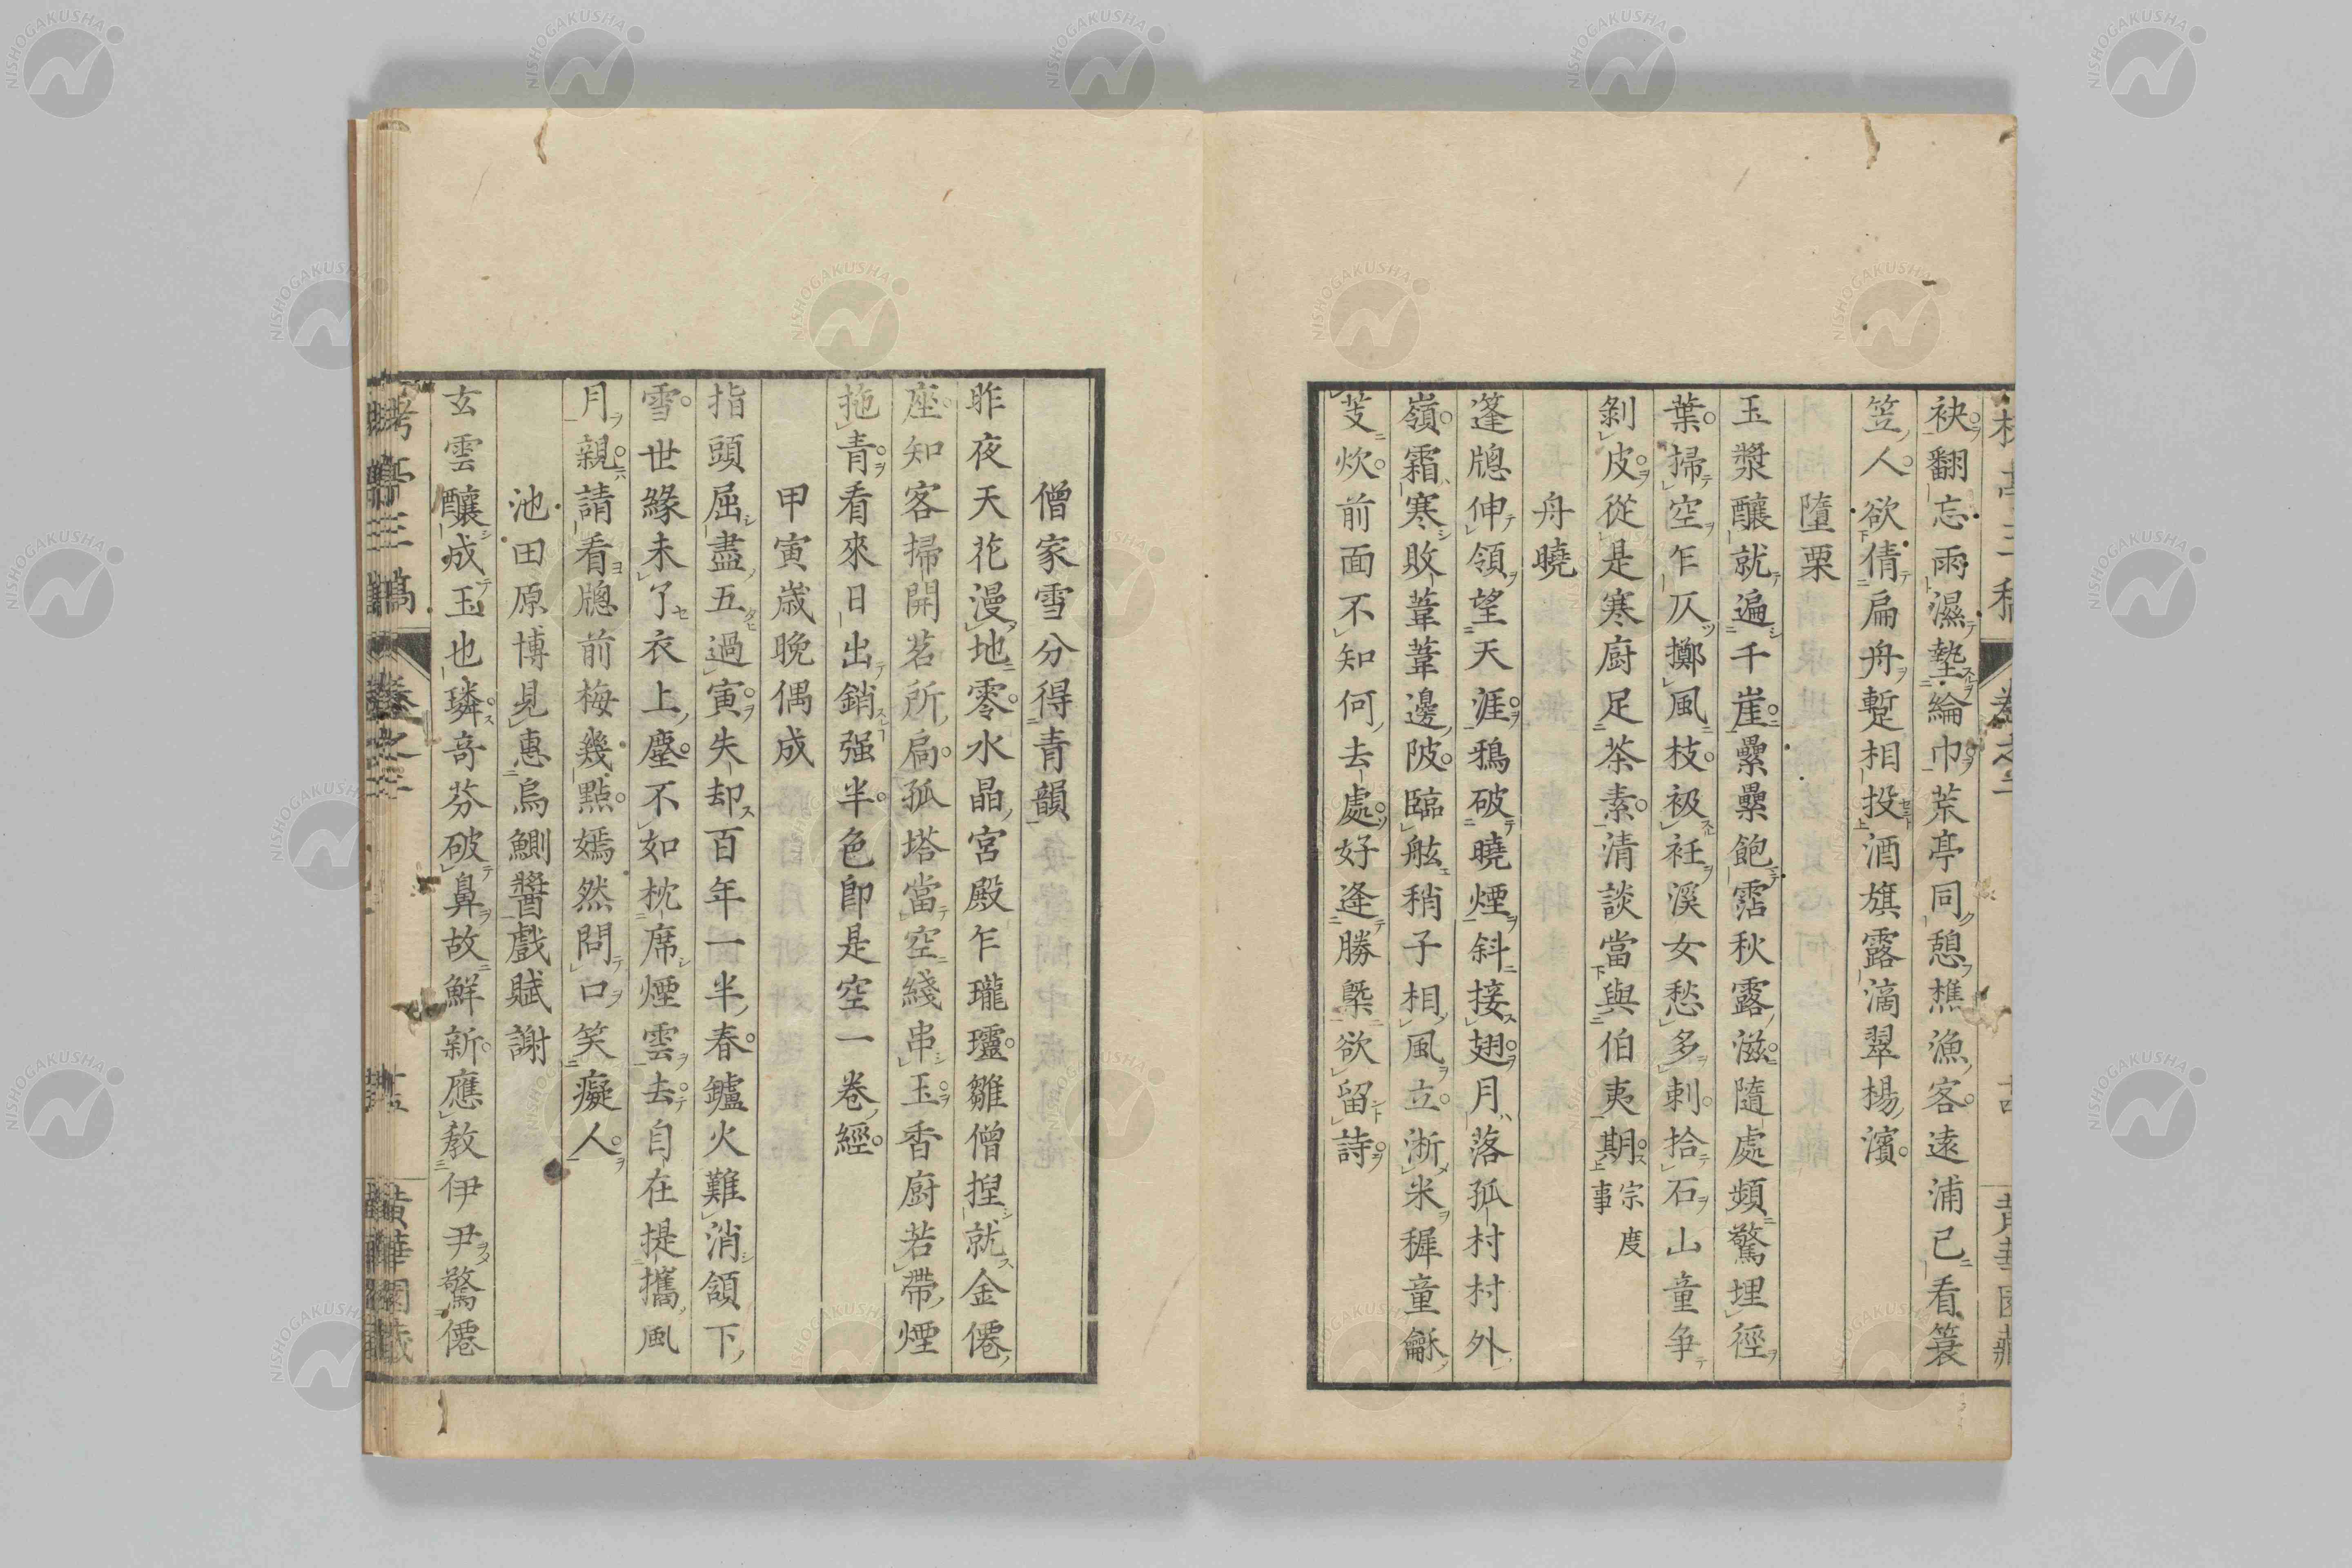 袂翻忘雨濕墊綸巾荒亭同憩樵漁客遠浦已看簑
笠人欲倩扁舟蹔相投酒旗露滴翠楊濱
墮栗
玉漿釀就遍千崖纍纍飽霑秋露滋隨處頻驚埋徑
葉掃空乍仄擲風枝衱衽溪女愁多刺拾石山童爭
剝皮從是寒廚足茶素清談當與伯夷期宗度事
舟曉
篷牕伸領望天涯鴉破曉煙斜接翅月落孤村村外
嶺霜寒敗葦葦邊陂臨舷稍子相風立淅米穉童龢
芰炊前面不知何去處好逢勝槩欲留詩
僧家雪分得青韻
昨夜天花漫地零水晶宮殿乍瓏瓏雛僧捏就金僊
座知客掃開茗所扃孤塔當空綫串玉香廚若帶煙
拖青看來日出銷强半色卽是空一卷經
甲寅歲晚偶成
指頭屈盡五過寅失却百年一半春鑪火難消頷下
雪世緣未了衣上塵不如枕席煙雲去自在提攜風
月親請看牕前梅幾點嫣然問口笑癡人
池田原博見惠烏鰂醬戲賦謝
玄雲釀成玉也璘奇芬破鼻故鮮新應敎伊尹驚僊
NISHOGAKUSHA